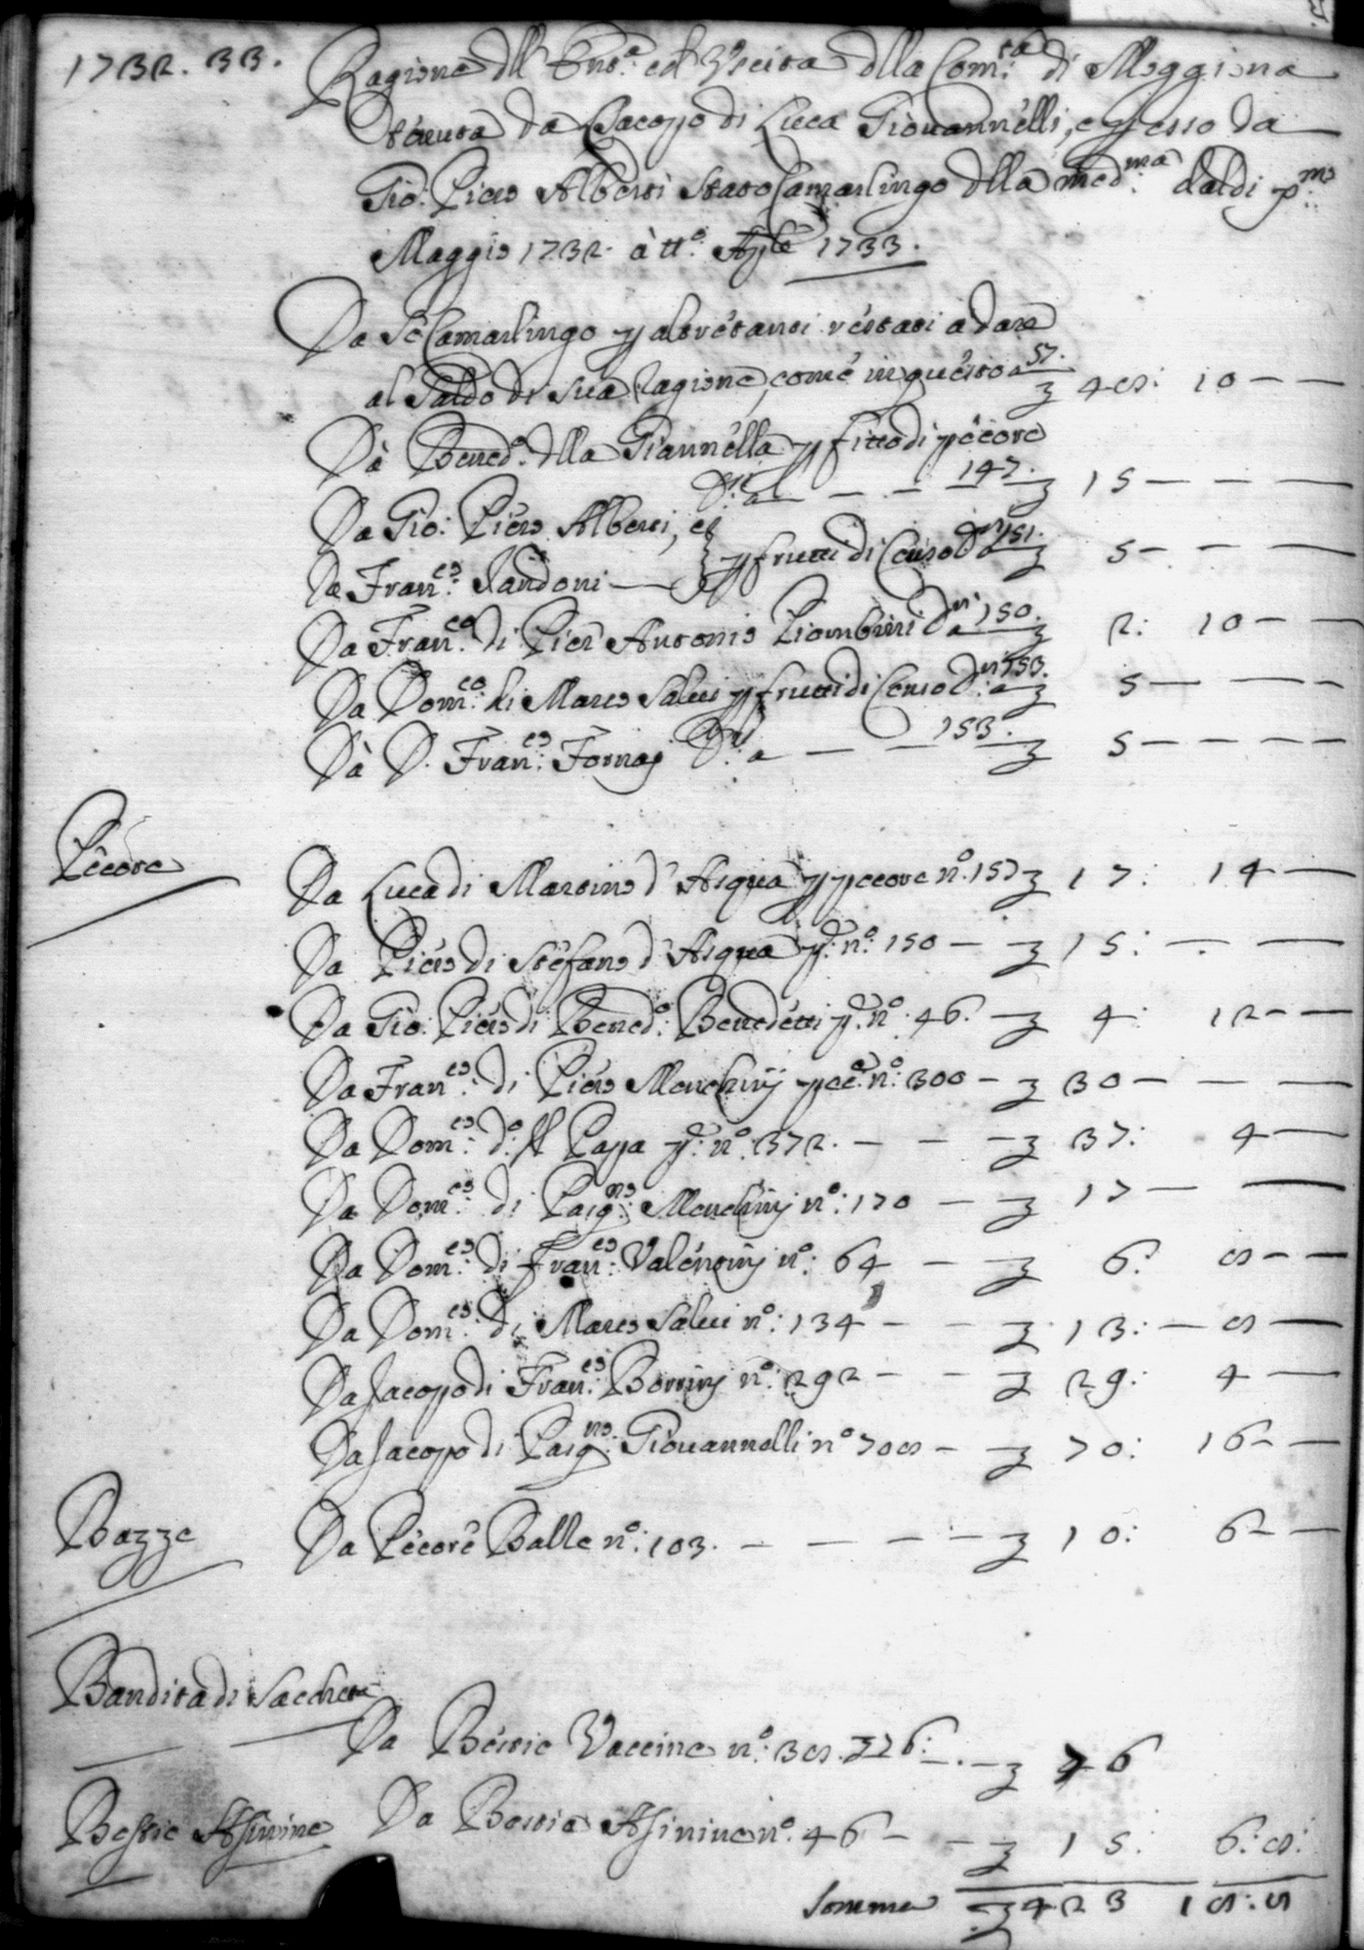 1732. 33. Ragione dll' Ent.ª ed Vscita dlla Com.tà di Moggiona
tenuta da Jacopo di Luca Giouannelli, e p esso da
Gio: Piero Alberti stato Camarlingo dlla med.ma dal di p.mo
Maggio 1732. à tt.º Aple 1733.
Da Se Camarlingo p altretanti restati a dare
al Saldo di sua Ragione, come in questo a 57. 48: 10 — —
Dà Bened.º dlla Giannella p fitto di pecore
D.ri a — — 147. 15 — — —
Da Gio: Piero Alberti, e
da Fran.co Landoni — p frutti di Censo D. a 151. 5 — — —
Da Fran.co di Pier Antonio Piombini D. a 150. 2: 10 — —
Da Dom.co di Marco Salui p frutti di Censo D. a 153. 5 — — —
Dà D. Fran.co Fornaj D.ri a — — 153. 5 — — —
Pecore
Da Luca di Martino d' Asqua p pecore nº. 157 17: 14 —
Da Piero di Stefano d' Asqua p.e nº: 150 — 15: — —
Da Gio: Piero di Bened.º Benedetti p.e nº. 46. — 4: 12 — —
Da Fran.co di Piero Menchinj pec.e nº: 300 — 30 — — —
Da Dom.co d.º il Papa p.e nº: 372. — — — 37: 4 —
Da Dom.co di Pasq.no Menchinj nº: 170 — 17 — —
Da Dom.co di Fran.co Valentinj nº: 64 — 6: 8 — —
Da Dom.co di Marco Salui nº: 134 — — 13: — 8 —
Da Jacopo di Fran.co Borrinj nº: 292 — — 29: 4 —
Da Jacopo di Pasq.no Giouannelli nº 708 — 70: 16 — —
Razze
Da Pecore Balle nº: 103. — — — — 10: 6 — —
Bandita di Saccheta
Da Bestie Vaccine nº: 38. 26: — 76
Bestie Asinine Da Bestie Asinine nº. 46 — — 15: 6: 8:
Somma 423 18: 8